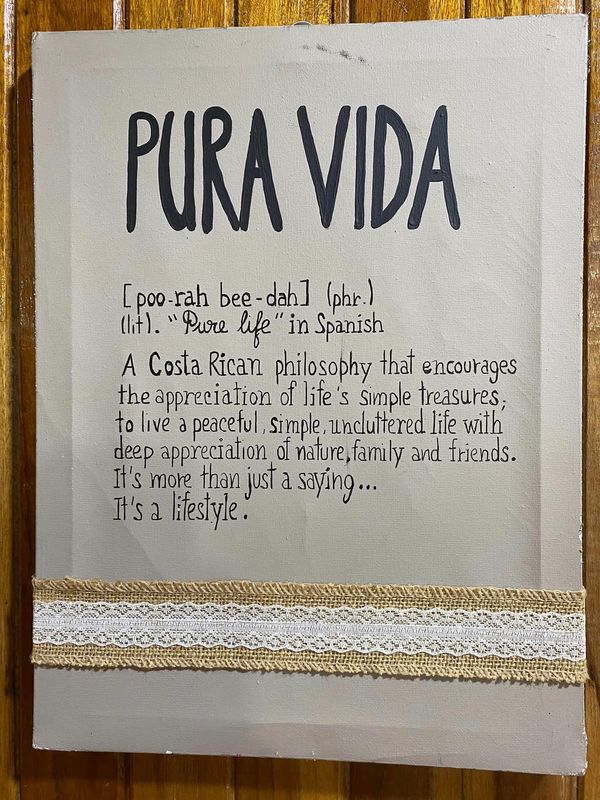 PURA VIDA
[poo-rah bee-dah] (phr.)
(lit). "Pure life" in Spanish
A Costa Rican philosophy that encourages
the appreciation of life's simple treasures;
to live a peaceful, simple, uncluttered life with
deep appreciation of nature, family and friends.
It's more than just a saying...
It's a lifestyle.